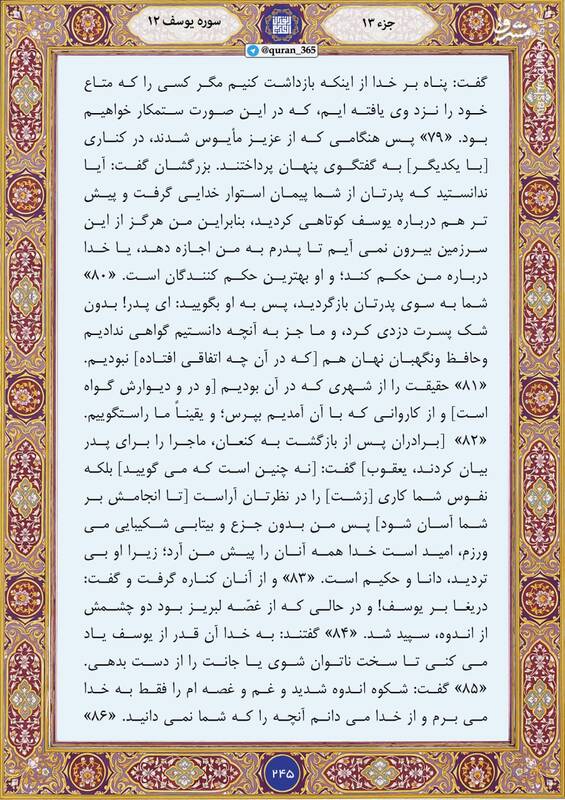 جزء ۱۳
سوره یوسف ۱۲
@quran_365
گفت: پناه بر خدا از اینکه بازداشت کنیم مگر کسی را که متاع
خود را نزد وی یافته ایم، که در این صورت ستمکار خواهیم
بود. «۷۹» پس هنگامی که از عزیز مأیوس شدند، در کناری
[با یکدیگر] به گفتگوی پنهان پرداختند. بزرگشان گفت: آیا
ندانستید که پدرتان از شما پیمان استوار خدایی گرفت و پیش
تر هم درباره یوسف کوتاهی کردید، بنابراین من هرگز از این
سرزمین بیرون نمی آیم تا پدرم به من اجازه دهد، یا خدا
درباره من حکم کند؛ و او بهترین حکم کنندگان است. «۸۰»
شما به سوی پدرتان بازگردید، پس به او بگویید: ای پدر! بدون
شک پسرت دزدی کرد، و ما جز به آنچه دانستیم گواهی ندادیم
وحافظ ونگهبان نهان هم [که در آن چه اتفاقی افتاده] نبودیم.
«۸۱» حقیقت را از شهری که در آن بودیم [و در و دیوارش گواه
است] و از کاروانی که با آن آمدیم بپرس؛ و یقیناً ما راستگوییم.
«۸۲» [برادران پس از بازگشت به کنعان، ماجرا را برای پدر
بیان کردند، یعقوب] گفت: [نه چنین است که می گویید] بلکه
نفوس شما کاری [زشت] را در نظرتان آراست [تا انجامش بر
شما آسان شود] پس من بدون جزع و بیتابی شکیبایی می
ورزم، امید است خدا همه آنان را پیش من آرد؛ زیرا او بی
تردید، دانا و حکیم است. «۸۳» و از آنان کناره گرفت و گفت:
دریغا بر یوسف! و در حالی که از غصّه لبریز بود دو چشمش
از اندوه، سپید شد. «۸۴» گفتند: به خدا آن قدر از یوسف یاد
می کنی تا سخت ناتوان شوی یا جانت را از دست بدهی.
«۸۵» گفت: شکوه اندوه شدید و غم و غصه ام را فقط به خدا
می برم و از خدا می دانم آنچه را که شما نمی دانید. «۸۶»
۲۴۵